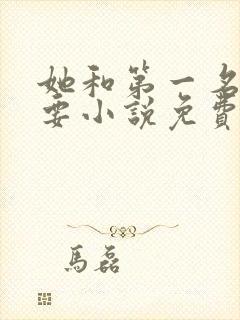 她和第一名
要小說免費
馬磊